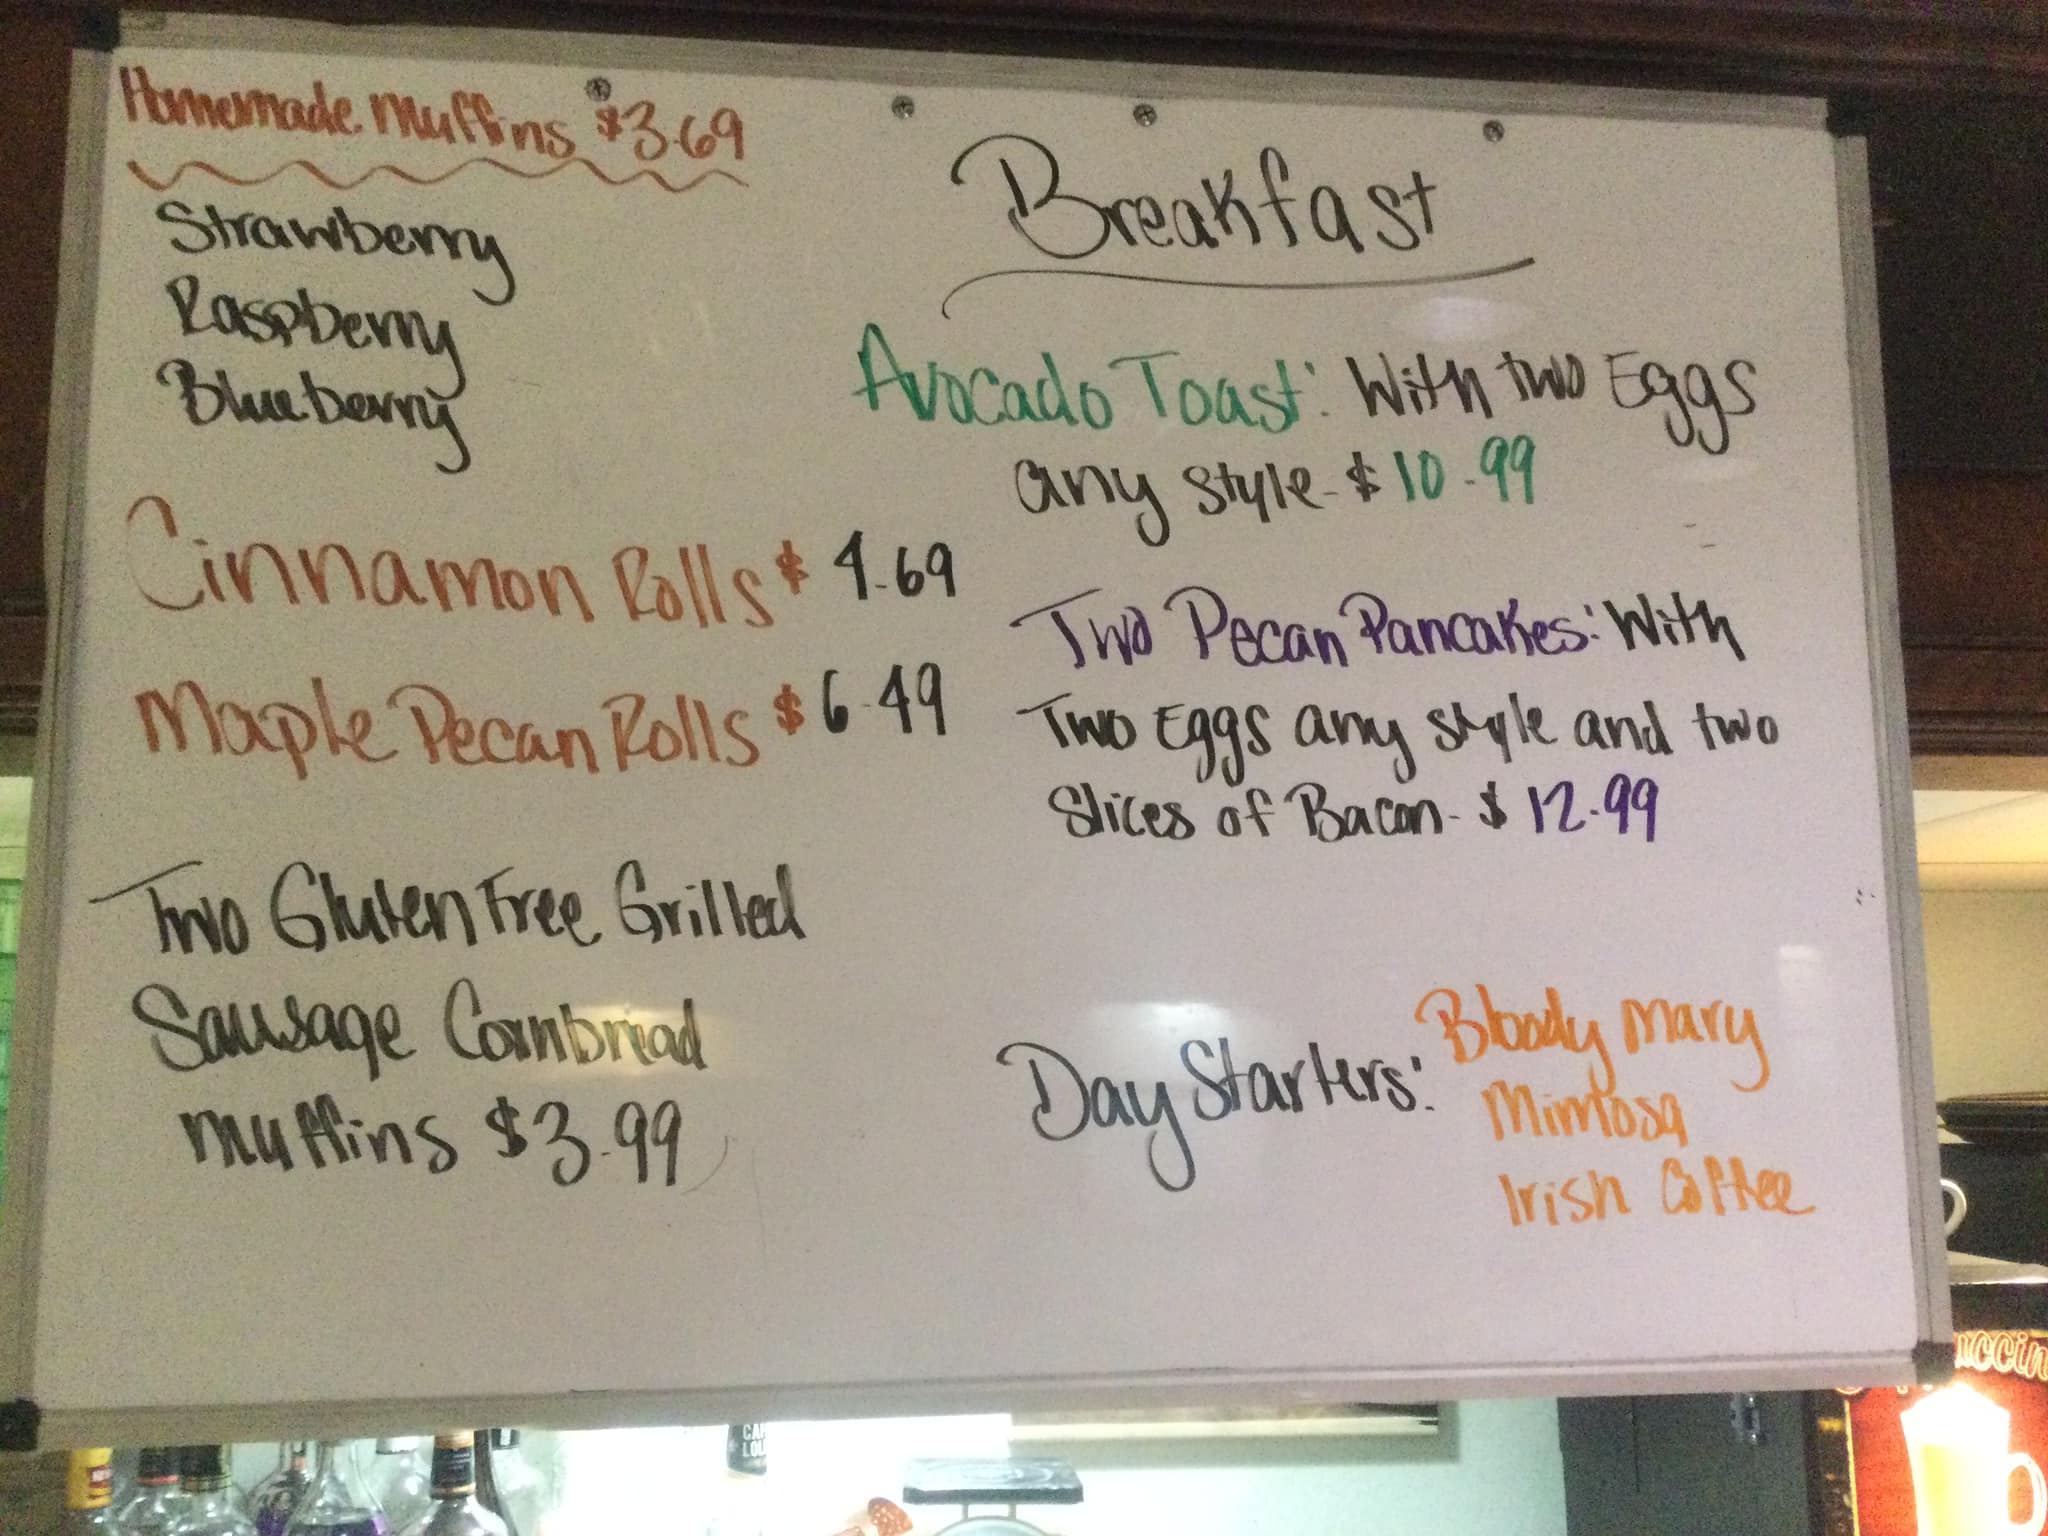 Homemade Muffins $3.69
Strawberry
Raspberry
Blueberry
Cinnamon Rolls $4.69
Maple Pecan Rolls $6.49
Two Gluten Free Grilled
Sausage Cornbread
Muffins $3.99
Breakfast
Avocado Toast: With two Eggs
any style - $10.99
Two Pecan Pancakes: With
Two Eggs any style and two
Slices of Bacon - $12.99
Day Starters: Bloody Mary
Mimosa
Irish Coffee